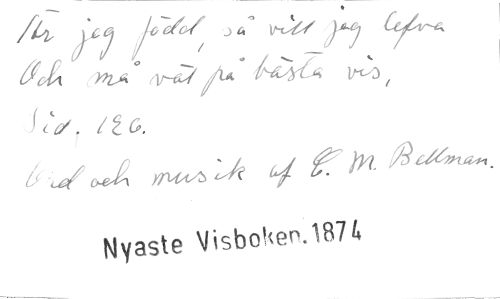 Är jag född, så vill jag lefva
Och må väl på bästa vis,
Sid. 126.
Ord och musik af C. M. Bellman.
Nyaste Visboken. 1874